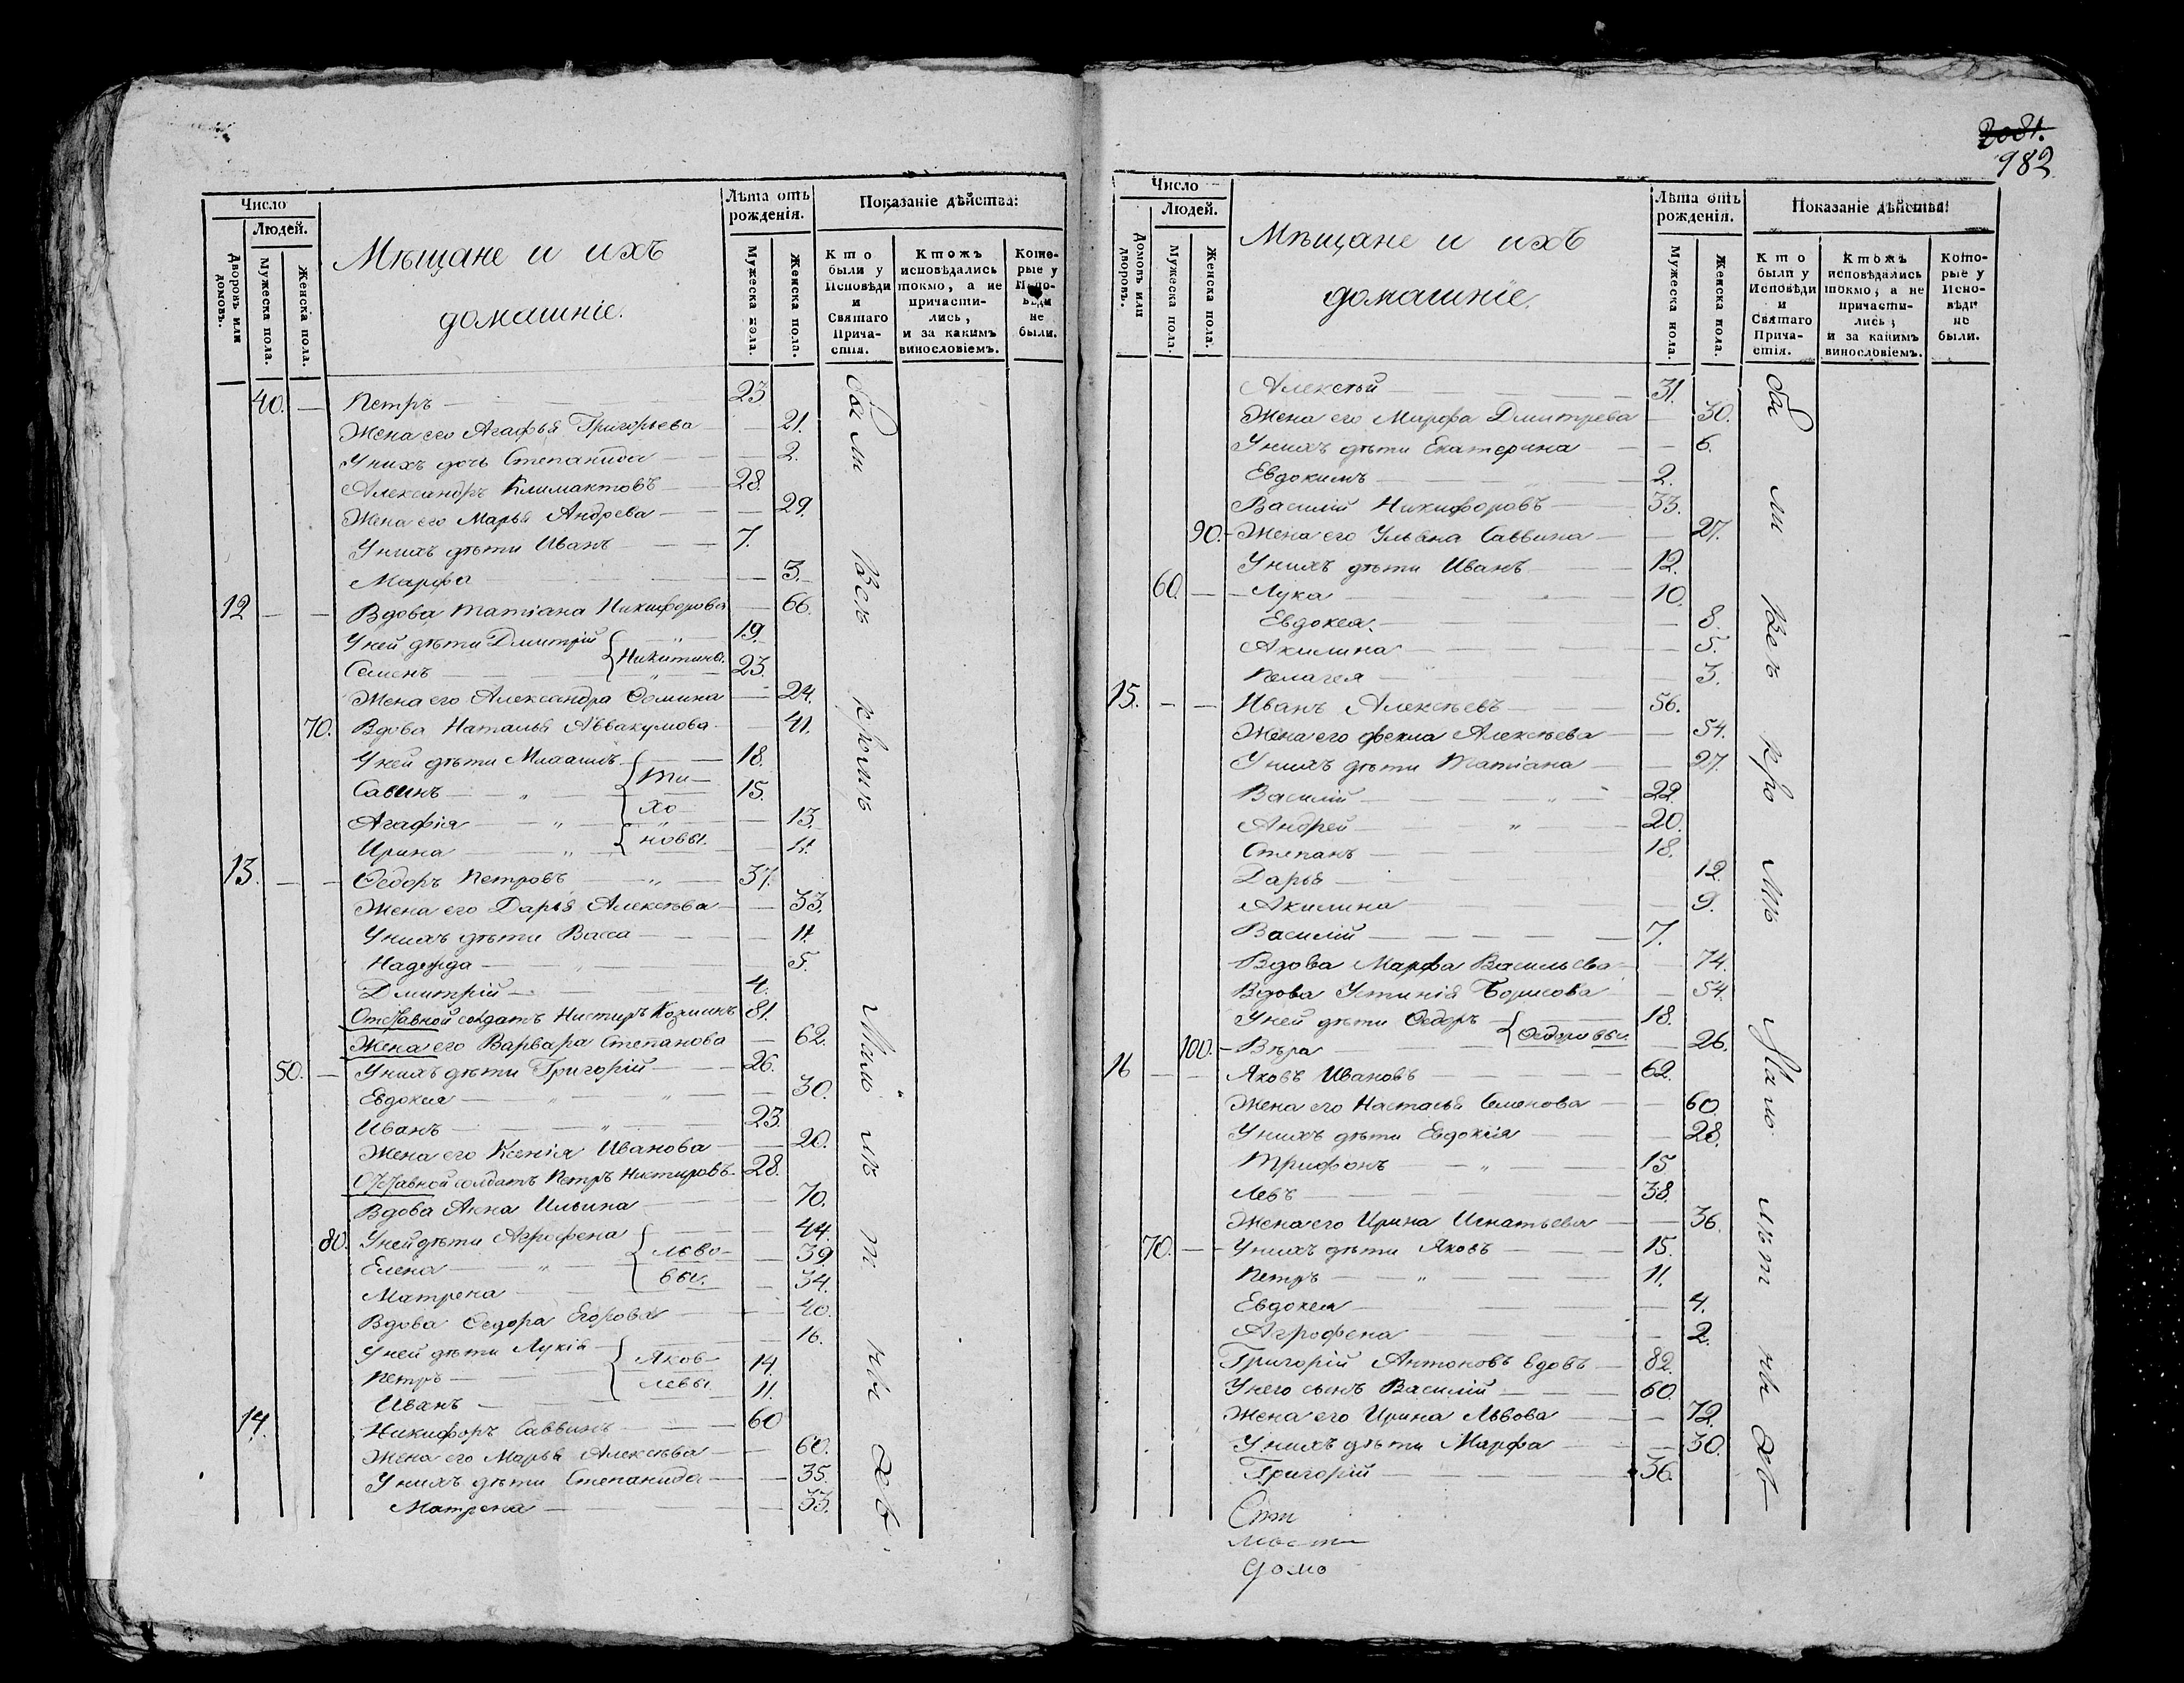 2081.
982
Число
Людей.
Дворовъ или домовъ.
Мужеска пола.
Женска пола.
Мѣщане и ихъ
домашніе.
Лѣта отъ рожденія.
Мужеска пола.
Женска пола.
Показаніе дѣйства:
Кто были у Исповѣди и Святаго Причастія.
Ктожъ исповѣдались токмо, а не причастились, и за какимъ винословіемъ.
Которые у Исповѣди не были.
40. Петръ 23
Жена его Агафья Григорьева 21.
У нихъ дочь Степанида 2.
Александръ Климактовъ 28.
Жена его Марья Андрева 29.
У нихъ дѣти Иванъ 7.
Марфа 3.
12 Вдова Татіана Никифорова 66.
У ней дѣти Дмитрій 19.
Никитины.
Семенъ 23.
Жена его Александра Ѳомина 24.
70. Вдова Наталья Аввакумова 41.
У ней дѣти 18.
Савинъ 15.
Агафія 13.
Ирина 11.
Тихоновы.
13. Ѳедоръ Петровъ 37.
Жена его Дарья Алексѣва 33.
У нихъ дѣти Васса 11.
Надежда 5.
Дмитрій 4.
Отставной солдатъ Нестиръ Козминъ 81.
Жена его Варвара Степанова 62.
50. У нихъ дѣти Григорій 26.
Евдокея 30.
Иванъ 23.
Жена его Ксенія Иванова 20.
Отставной солдатъ Петръ Нестировъ 28.
Вдова Анна Ильина 70.
80. У ней дѣти Агрофена 44.
Елена 39.
Матрена 34.
Львовы.
Вдова Ѳедора Егорова 40.
У ней дѣти Лукія 16.
Петръ 14.
Иванъ 11.
Яковлевы
14. Никифоръ Саввинъ 60
Жена его Марья Алексѣва 60.
У нихъ дѣти Степанида 35.
Матрена 33.
были всѣ кромѣ малолѣтныхъ
Число
Людей.
Домовъ или дворовъ.
Мужеска пола.
Женска пола.
Мѣщане и ихъ
домашніе.
Лѣта отъ рожденія.
Мужеска пола.
Женска пола.
Показаніе дѣйства:
Кто были у Исповѣди и Святаго Причастія.
Ктожъ исповѣдались токмо, а не причастились, и за какимъ винословіемъ.
Которые у Исповѣди не были.
Алексѣй 31.
Жена его Марфа Дмитрева 30.
У нихъ дѣти Екатерина 6.
Евдокимъ 2.
Василій Никифоровъ 33.
90. Жена его Ульяна Саввина 27.
У нихъ дѣти Иванъ 12.
60. Лука 10.
Евдокея 8.
Акилина 5.
Пелагея 3.
15. Иванъ Алексѣевъ 56.
Жена его Фекла Алексѣева 54.
У нихъ дѣти Татіана 27.
Василій 22.
Андрей 20.
Степанъ 18.
Дарья 12.
Акилина 9.
Василій 7.
Вдова Марфа Васильева 74.
Вдова Устинія Борисова 54.
У ней дѣти Ѳедоръ 18.
Ѳедоровы.
100. Вѣра 26.
16 Яковъ Ивановъ 62.
Жена его Настасья Семенова 60.
У нихъ дѣти Евдокія 28.
Трифонъ 15
Левъ 38.
Жена его Ирина Игнатьева 36.
70. У нихъ дѣти Яковъ 15.
Петръ 11.
Евдокея 4.
Агрофена 2.
Григорій Антоновъ вдовъ 82.
У него сынъ Василій 60.
Жена его Ирина Львова 72.
У нихъ дѣти Марфа 30.
Григорій 36.
были всѣ кромѣ малолѣтныхъ
домо